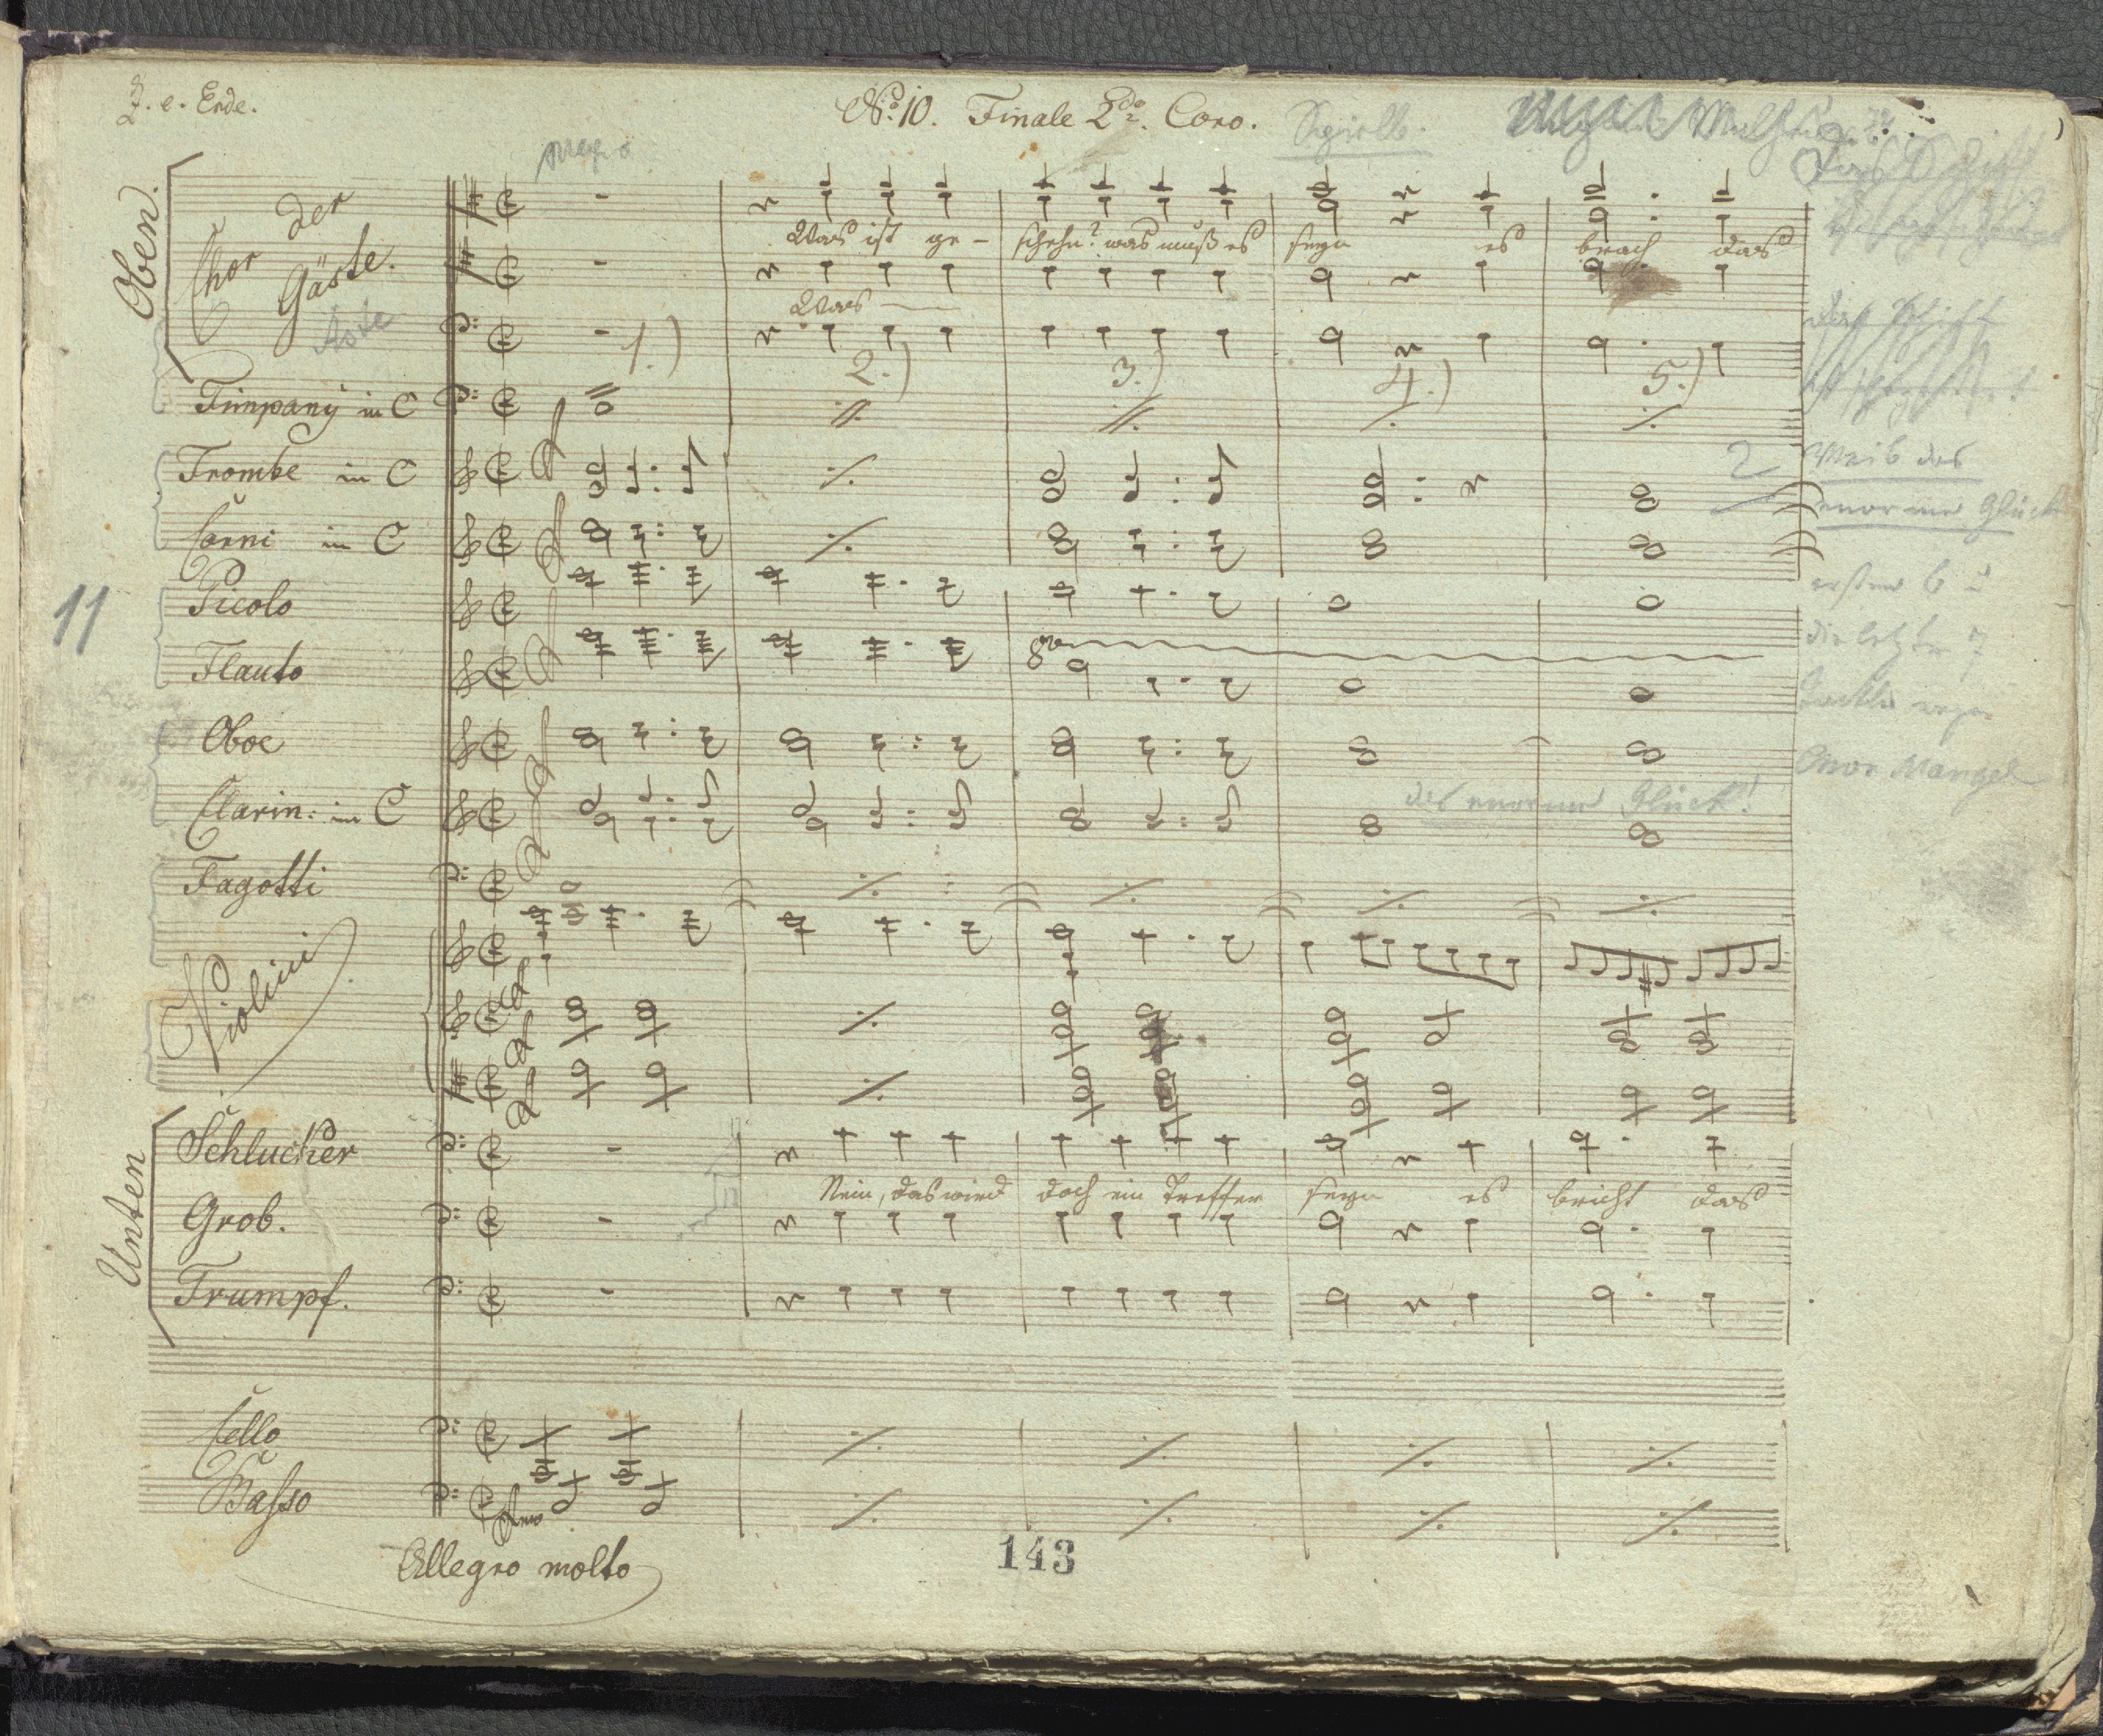 Z. e. Ende.
No. 10. Finale 2do. Coro.
Oben.
Chor der Gäste.
Was ist ge- schehn? was muß es seyn es brach das
Was
1.) 2.) 3.) 4.) 5.)
Timpany in C
Trombe in C
2 Weib das
enorme Glück
Corni in C
11
Picolo
die letzte 7
Flauto
Oboe
Chor Mangel
das enorme Glück!
Clarin: in C
Fagotti
Violini
Unten
Schlucker
Nein, das wird doch ein Treffer seyn es bricht das
Grob.
Trumpf.
Cello
Basso
Allegro molto
143